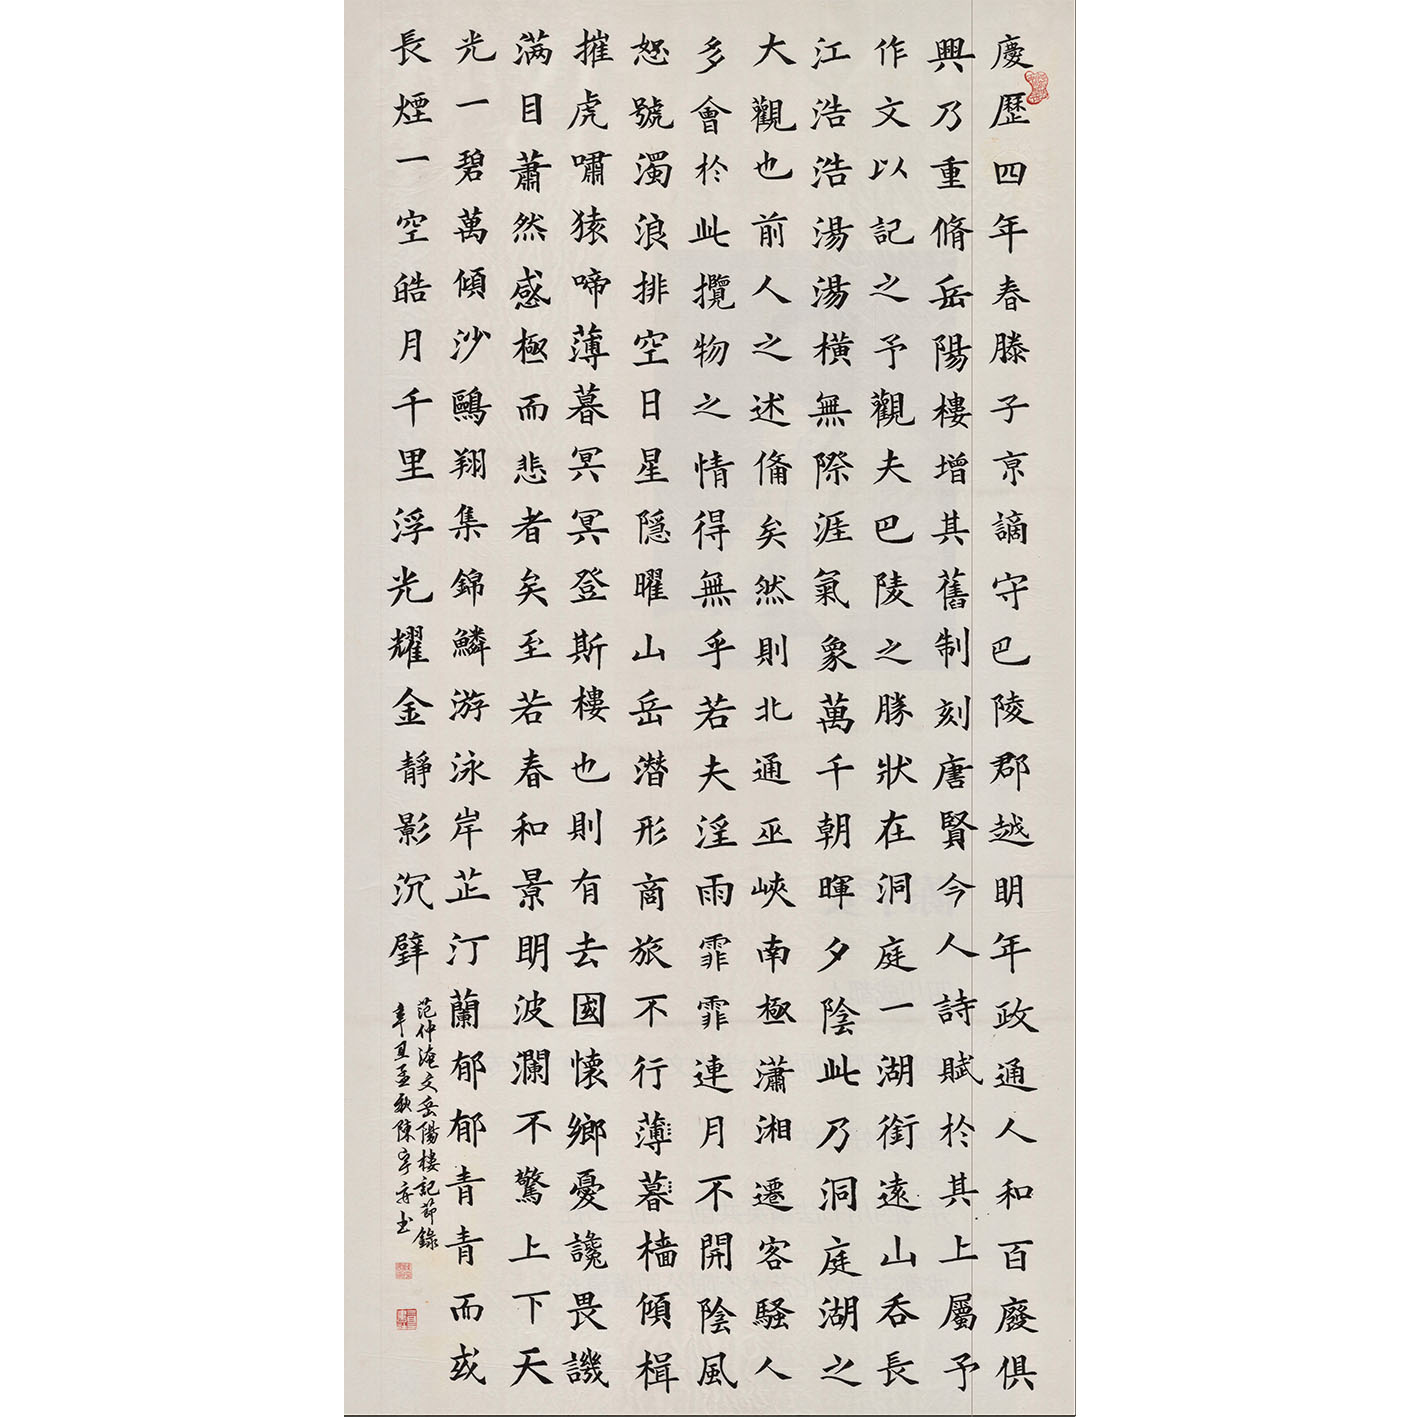 慶歷四年春滕子亰謫守巴陵郡越明年政通人和百廢俱
興乃重脩岳陽樓增其舊制刻唐賢今人詩賦於其上屬予
作文以記之予觀夫巴陵之勝狀在洞庭一湖銜遠山吞長
江浩浩湯湯橫無際涯氣象萬千朝暉夕陰此乃洞庭湖之
大觀也前人之述俻矣然則北通巫峽南極瀟湘遷客騷人
多會於此攬物之情得無乎若夫淫雨霏霏連月不開陰風
怒號濁浪排空日星隱曜山岳潛形商旅不行薄暮檣傾楫
摧虎嘯猿啼薄暮冥冥登斯樓也則有去國懷鄉憂讒畏譏
滿目蕭然感極而悲者矣至若春和景明波瀾不驚上下天
光一碧萬傾沙鷗翔集錦鱗游泳岸芷汀蘭郁郁青青而或
長煙一空皓月千里浮光耀金靜影沉璧
范仲淹文岳陽樓記節錄
辛丑孟秋陳宇书